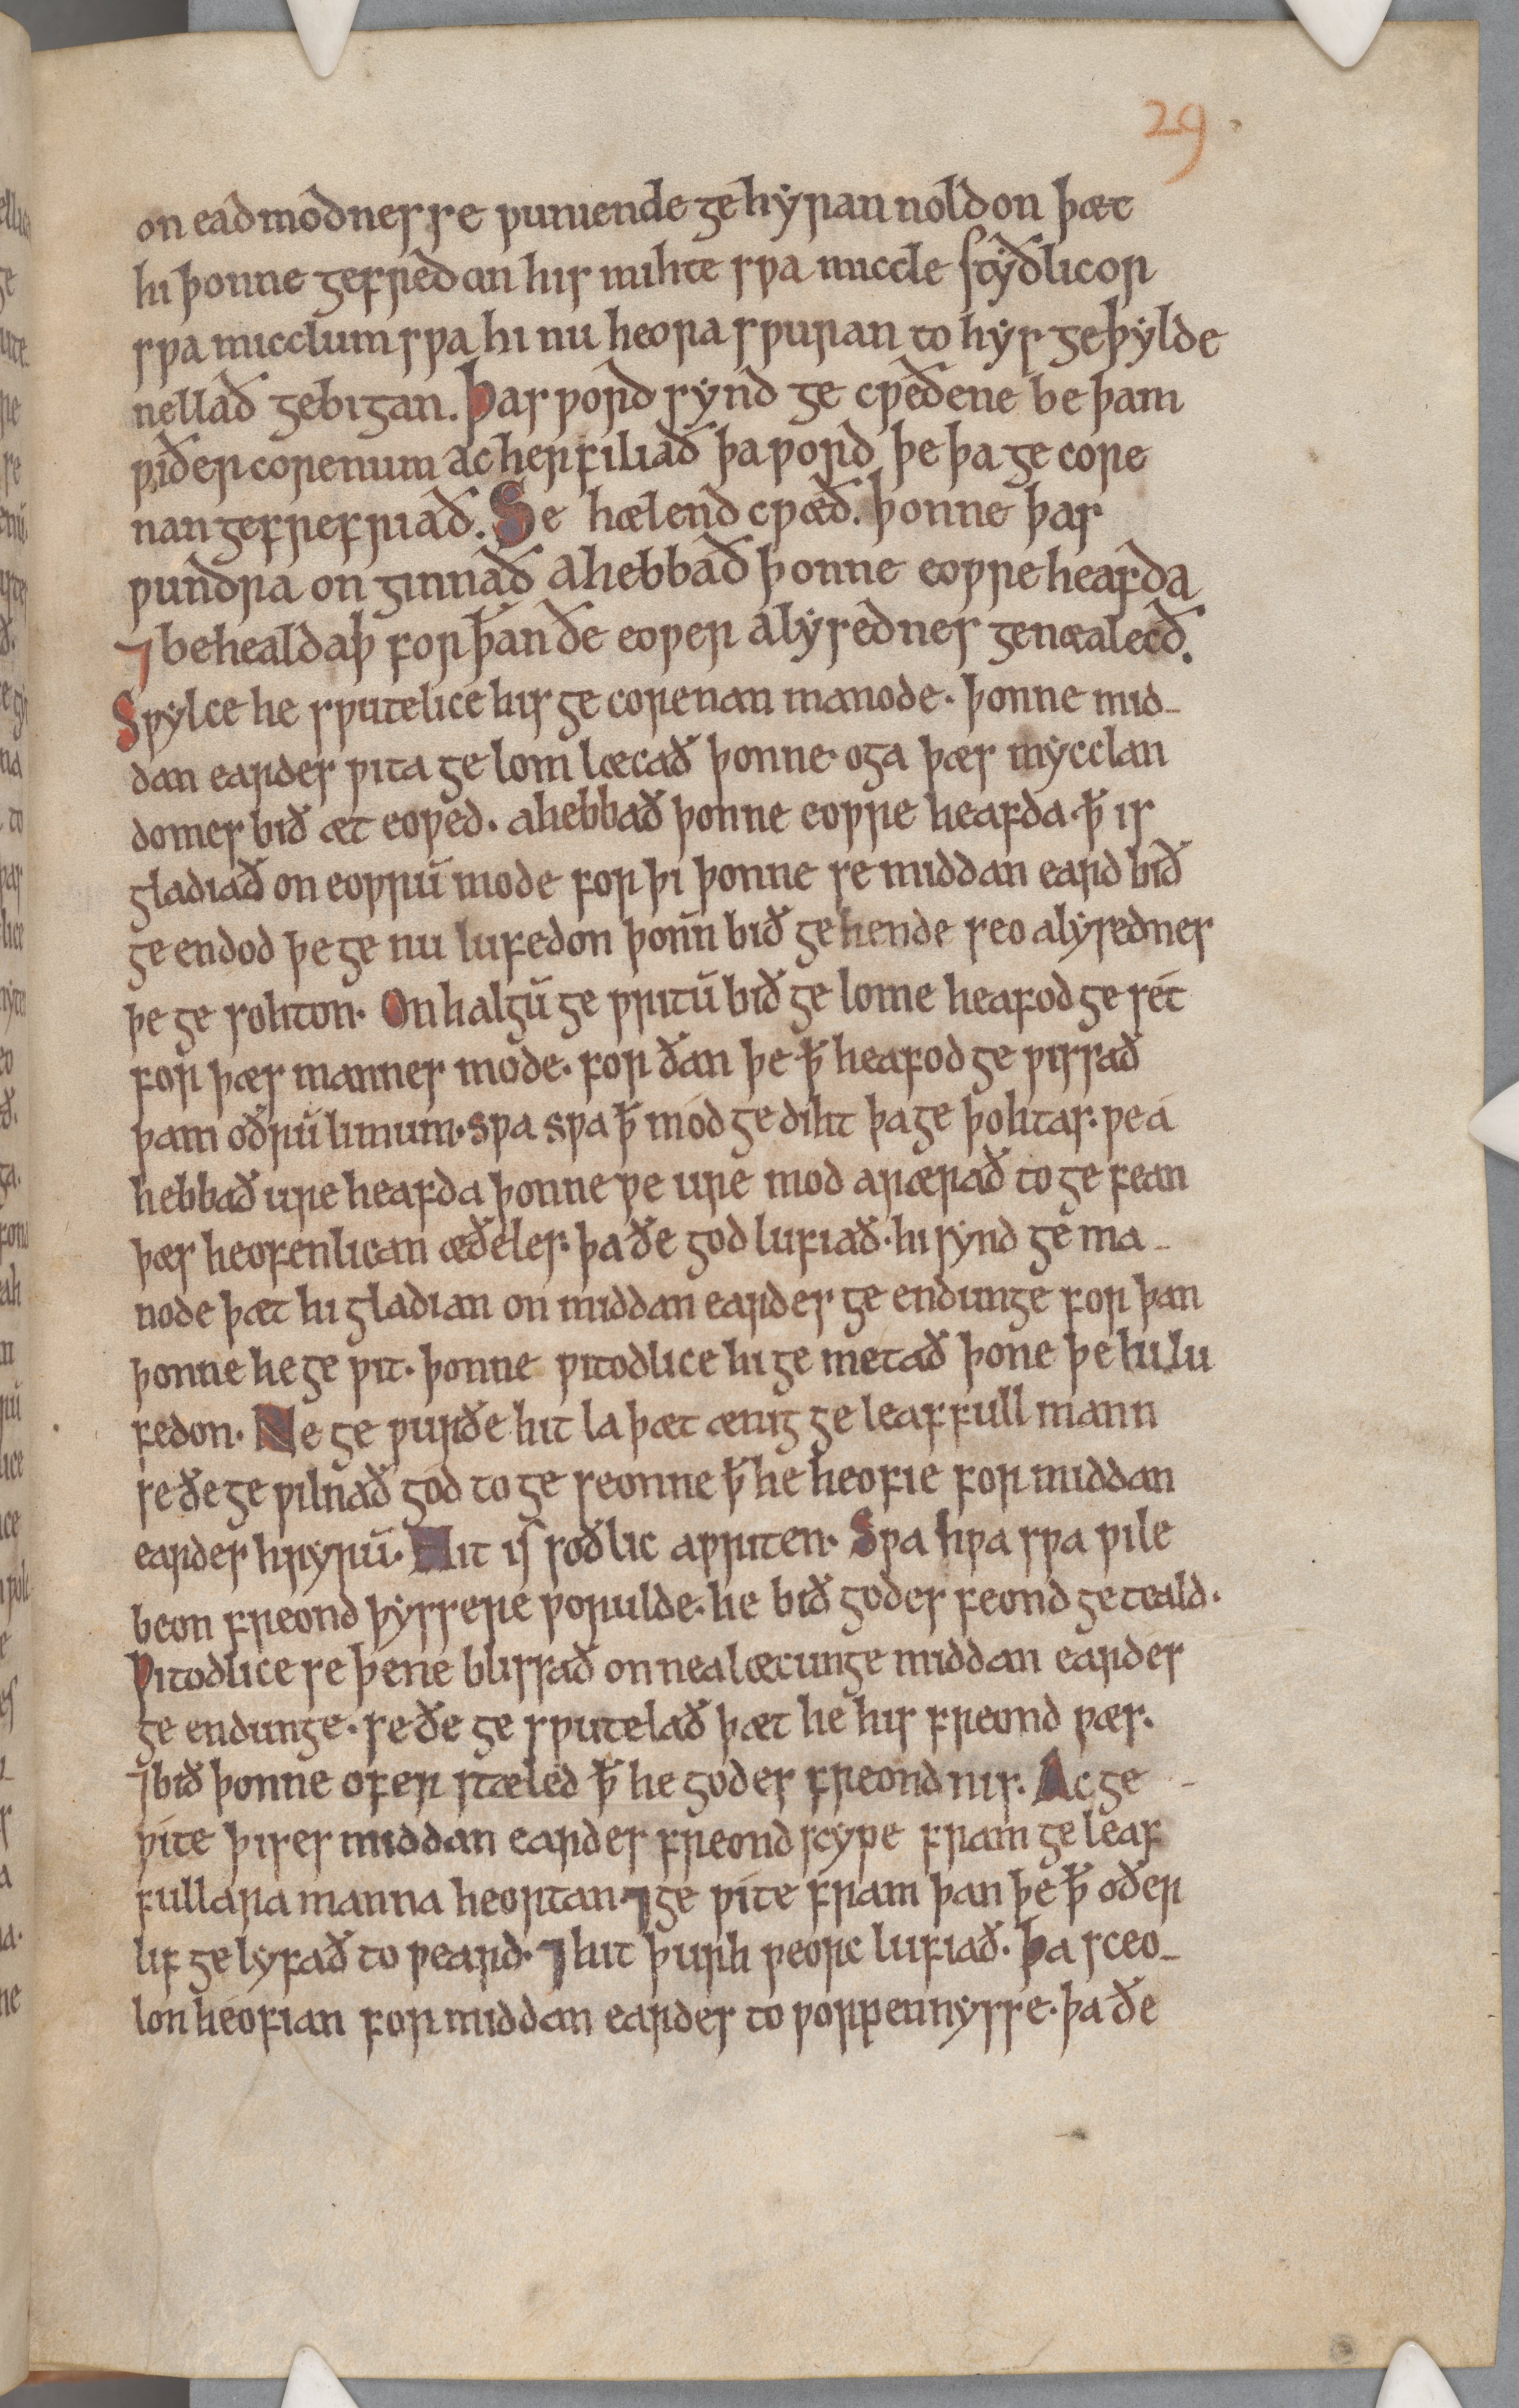 29
on eadmodnesse ƿuniende gehẏran noldon þæt
hi þonne gefredan his mihte sƿa miccle stẏðlicor
sƿa micclum sƿa hi nu heora sƿuran to hẏs geþẏlde
nellað gebigan. Þas ƿord sẏnd ge cƿedene be þam
ƿiðercorenum ac her filiað þa ƿord þe þa ge core
nan gefrefriað. Se hælend cƿæð. þonne þas
ƿundra on ginnað ahebbað þonne eoƿre heafda
⁊ behealdaþ for þan ðe eoƿer alẏsednes genealecð.
Sƿẏlce he sƿutelice his ge corenan manode. þonne mid-
dan eardes ƿita ge lom læcað þonne oga þæs mẏcclan
domes bið æt eoƿed. ahebbað þonne eoƿre heafda ꝥ is
gladiað on eoƿrū mode for þi þonne se middan eard bið
ge endod þe ge nu lufedon þonn̄ bið ge hende seo alẏsednes
þe ge sohton. On halgū ge ƿritū bið ge lome heafod ge sét
for þæs mannes mode. for ðan þe ꝥ heafod ge ƿissað
þam oðrū limum. sƿa sƿa ꝥ mód ge diht þa ge þohtas. ƿe á
hebbað ure heafda þonne ƿe ure mod arærað to ge fean
þæs heofenlican æðeles. þa ðe god lufiað. hi sẏnd ge ma-
node þæt hi gladian on middan eardes ge endunge for þan
þonne he ge ƿit. þonne ƿitodlice hi ge metað þone þe hi lu
fedon. Ne ge ƿurðe hit la þæt ænig ge leaffull mann
se ðe ge ƿilnað gód to ge seonne ꝥ he heofie for middan
eardes hryrū. Hit is soðlic aƿriten. Sƿa hƿa sƿa ƿile
beon freond þẏssere ƿorulde. he bið godes feond ge teald.
Ƿitodlice se þe ne blissað on nealæcunge middan eardes
ge endunge. se ðe ge sƿutelað þæt he his freond ƿæs.
⁊ bið þonne ofer stæled ꝥ he godes freond nis. Ac ge
ƿíte þises middan eardes freond scype fram ge leaf
fullara manna heortan. ⁊ ge ƿíte fram þan þe ꝥ oðer
lif ge lyfað to ƿeard. ⁊ hit þurh ƿeorc lufiað. Þa sceo-
lon heofian for middan eardes to ƿorpennysse. þa ðe